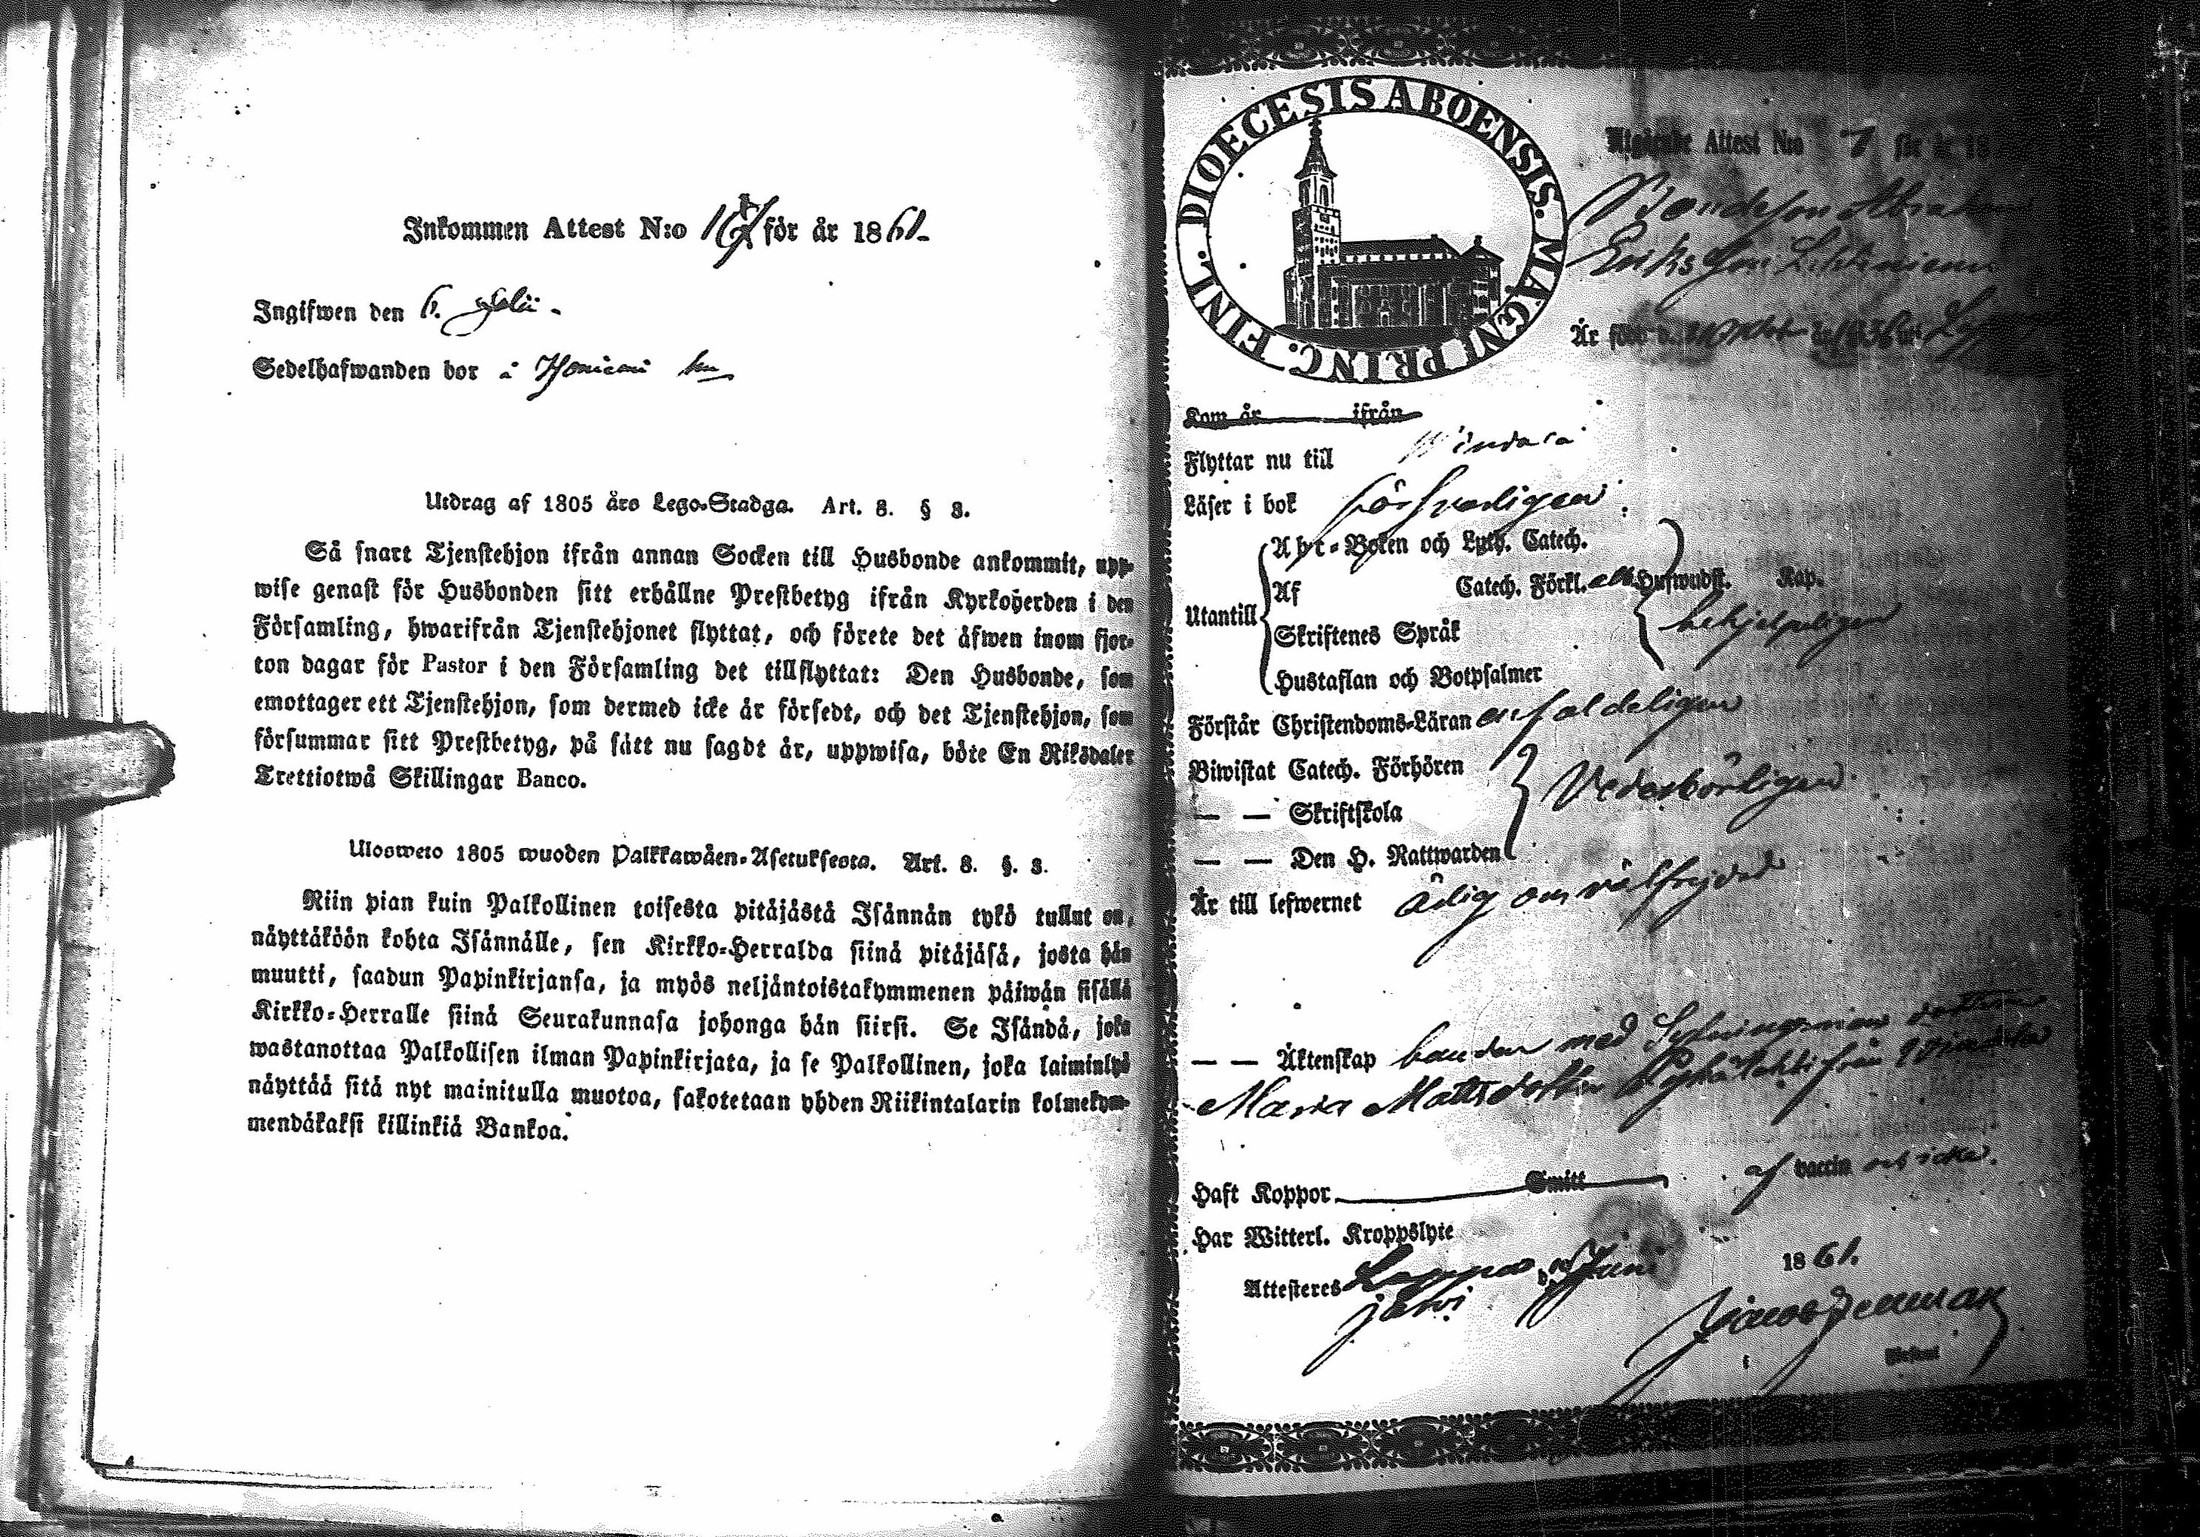 Inkommen Attest N:o för år 1861.
Ingifwen den 6. Julii.
Sedelhafwanden bor å
Utdrag af 1805 års Lego-Stadga. Art. 8. § 3.
Så snart Tjenstehjon ifrån annan Socken till Husbonde ankommit, upp-
wise genast för Husbonden sitt erhållne Prestbetyg ifrån Kyrkoherden i den
Församling, hwarifrån Tjenstehjonet flyttat, och förete det äfwen inom fjor-
ton dagar för Pastor i den Församling det tillflyttat: Den Husbonde, som
emottager ett Tjenstehjon, som dermed icke är försedt, och det Tjenstehjon, som
försummar sitt Prestbetyg, på sätt nu sagdt är, uppwisa, böte En Riksdaler
Trettiotwå Skillingar Banco.
Ulosweto 1805 wuoden Palkkawäen-Asetuksesta. Art. 8. §. 3.
Niin pian kuin Palkollinen toisesta pitäjästä Isännän tykö tullut on,
näyttäköön kohta Isännälle, sen Kirkko-Herralda siinä pitäjäsä, josta hän
muutti, saadun Papinkirjansa, ja myös neljäntoistakymmenen päiwän sisällä
Kirkko-Herralle siinä Seurakunnasa johonga hän siirsi. Se Isändä, joka
wastanottaa Palkollisen ilman Papinkirjata, ja se Palkollinen, joka laiminlyö
näyttää sitä nyt mainitulla muotoa, sakotetaan yhden Riikintalarin kolmekym-
mendäkaksi killinkiä Bankoa.
DIOECESIS ABOENSIS. MAGNI PRINC. FINL.
Utgående Attest N:o 7 för år 18
Bondeson Abraham
Eriksson
Är född d. 1836 i
Kom år ifrån
Flyttar nu till Vindala
Läser i bok försvarligen
Utantill
Abc-Boken och Luth. Catech.
Af Catech. Förkl. Hufwudst. Kap.
Skriftenes Språk behjelpeligen
Hustaflan och Botpsalmer
Förstår Christendoms-Läran enfaldeligen
Biwistat Catech. Förhören
— — Skriftskola Vederbörligen
— — Den H. Nattwarden
Är till lefwernet ärlig om välfrejdad
— — Äktenskap bunden med
Maria Mattsdotter från Vindala
Haft Koppor Smitt af vaccin
Har Witterl. Kroppslyte
Attesteres Lappo d. Juni 1861.
järvi